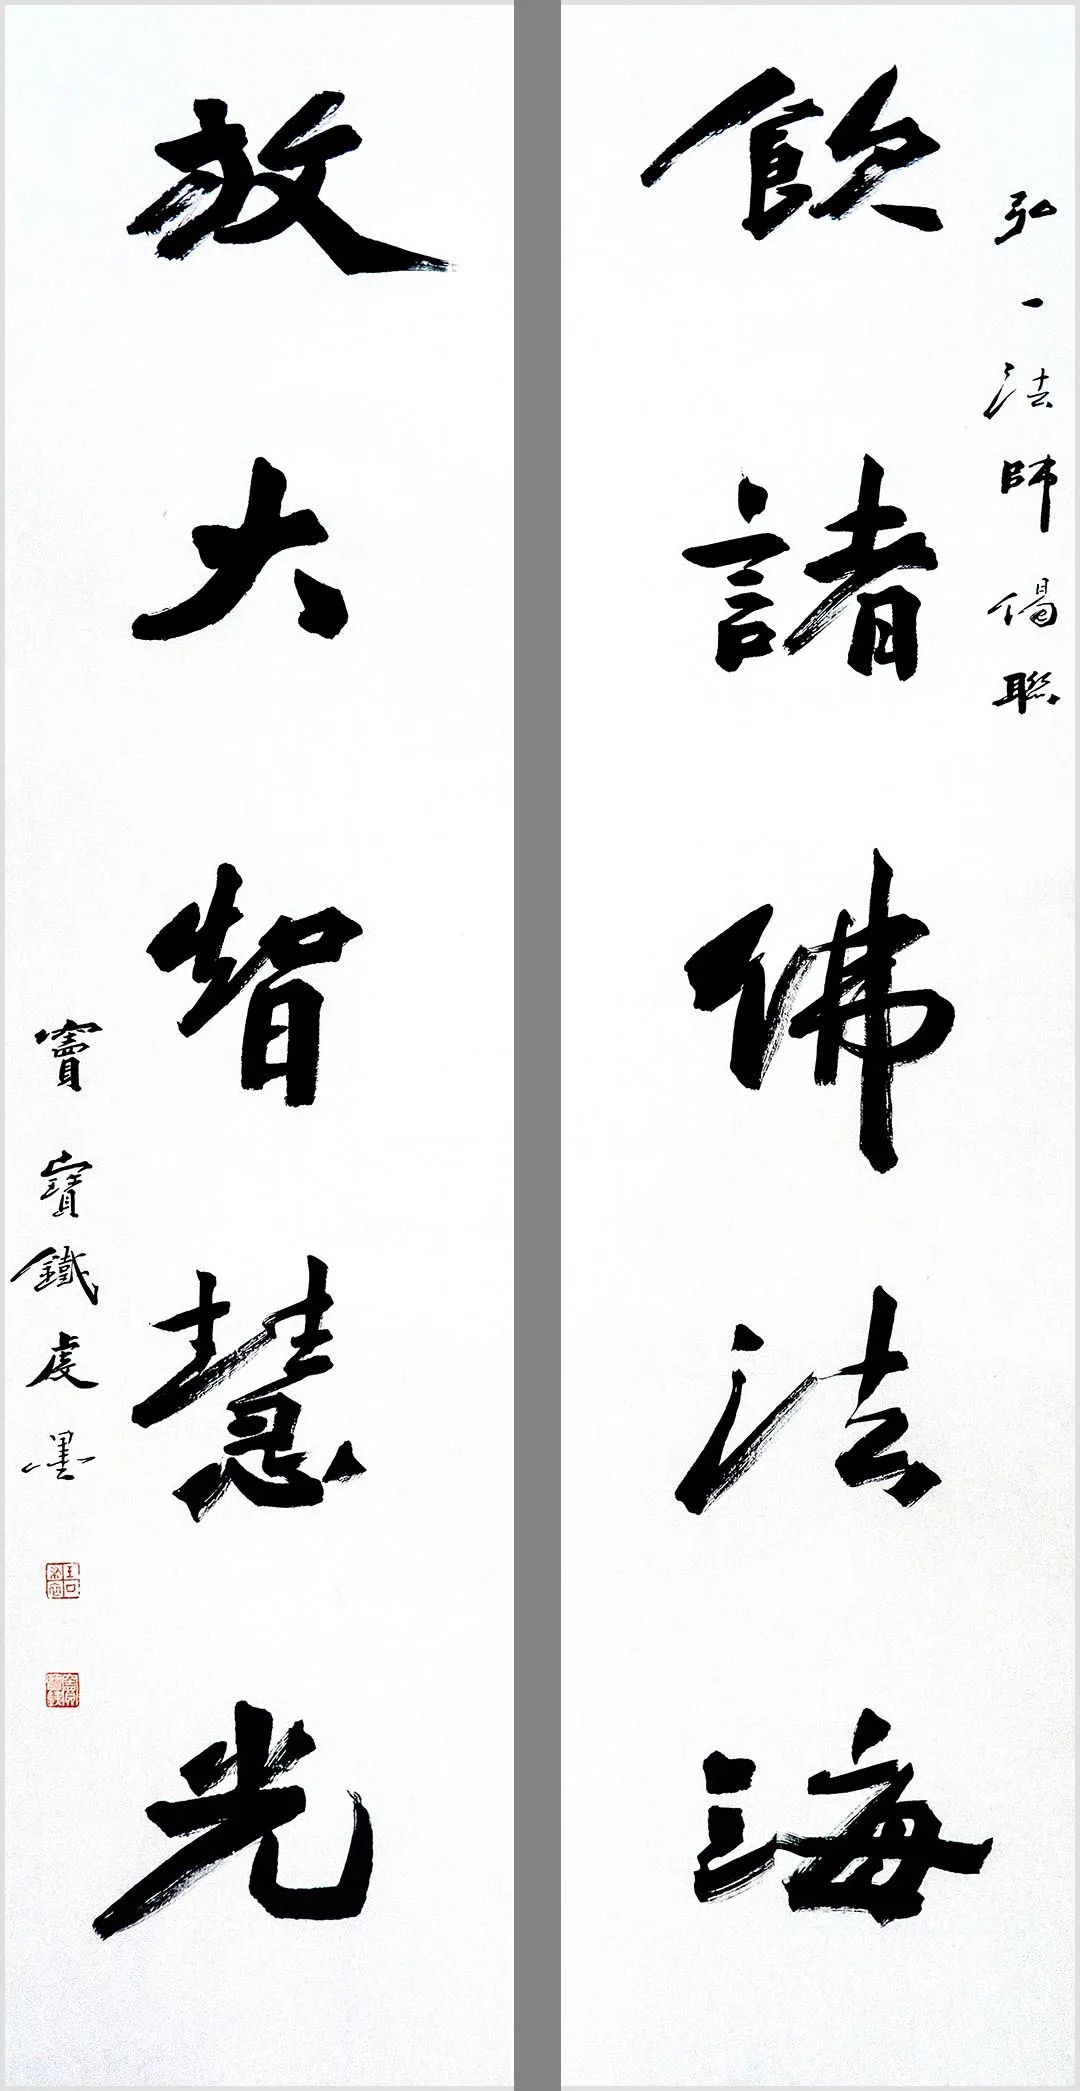 弘一法師偈聯
飲諸佛法海
放大智慧光
竇寶鐵虔墨